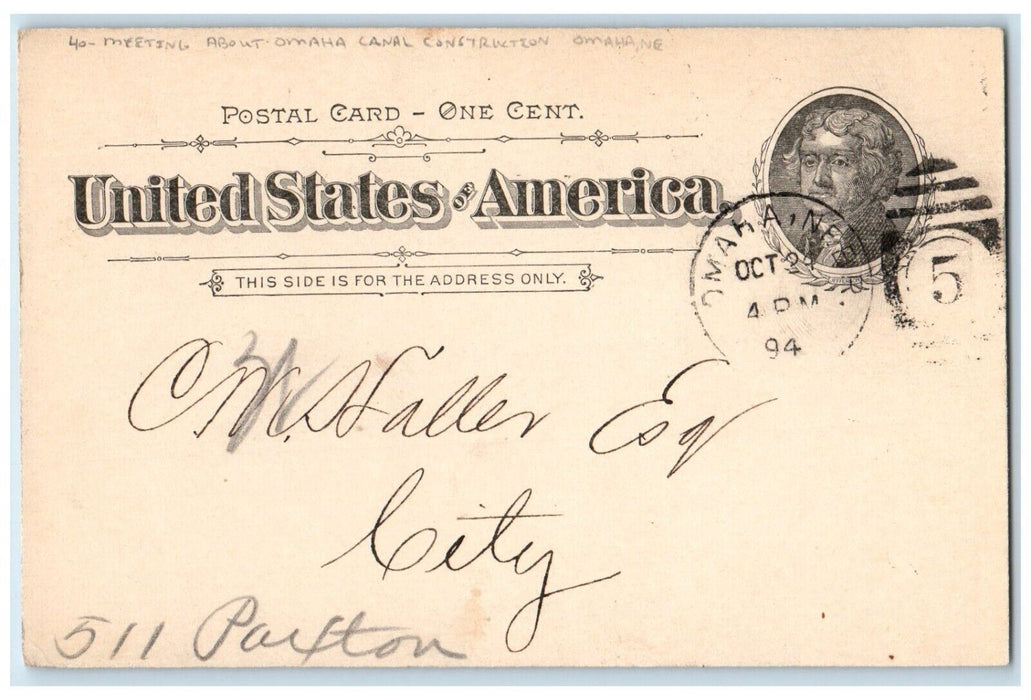 40- MEETING ABOUT OMAHA CANAL CONSTRUCTION OMAHA, NE
POSTAL CARD - ONE CENT.
United States OF America.
THIS SIDE IS FOR THE ADDRESS ONLY.
OMAHA, NEB.
OCT 24
4 PM
94
5
C. W. Haller Esq
City
511 Paxton